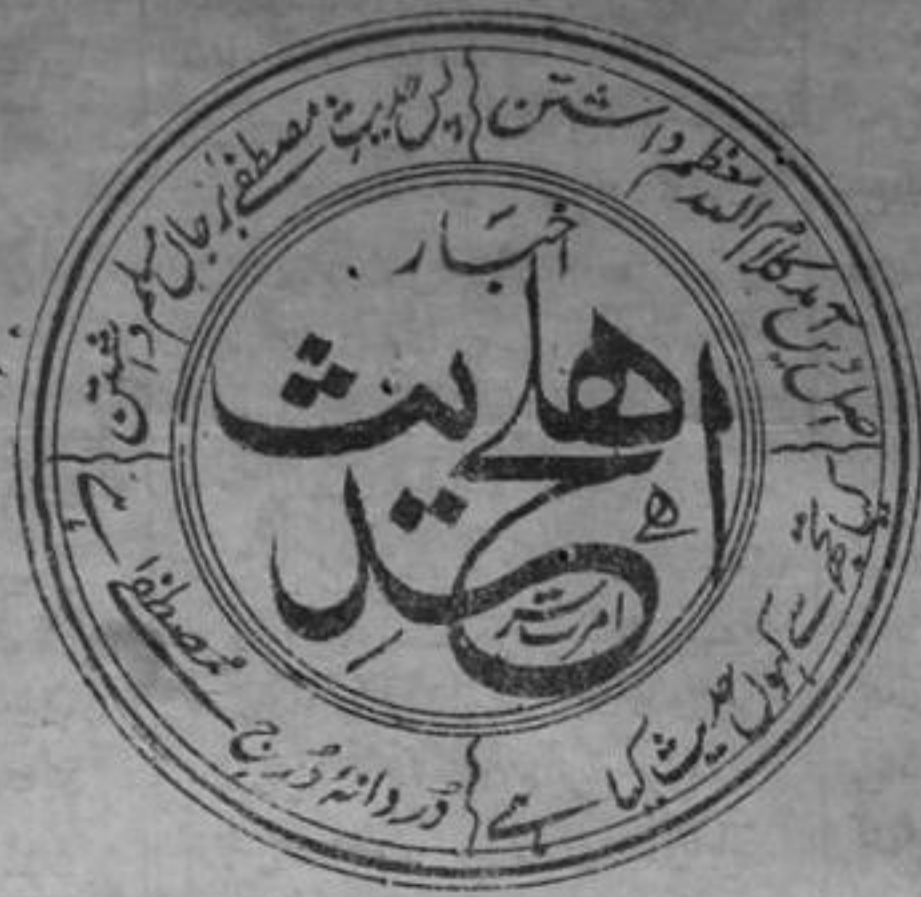 اخبار
اهلحدیث
امرتسر
اصل دین آمد کلام اللہ معظم داشتن
پس حدیث مصطفےٰ بر جاں مسلم داشتن
میں تجھ سے کہوں حدیث کیا ہے
دُر دانۂ دُرج مصطفےٰ ہے